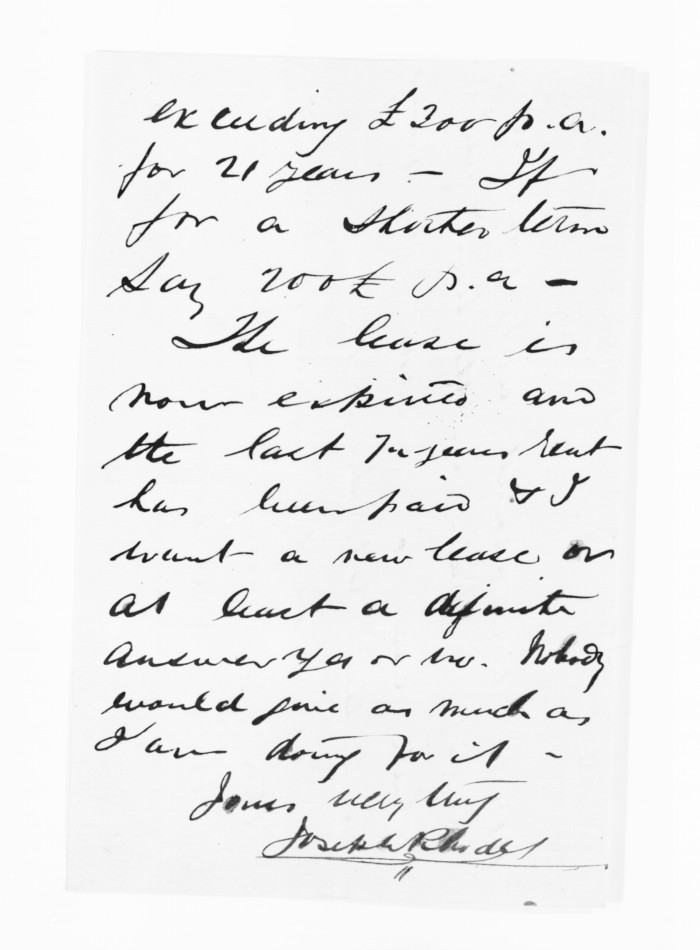 exceeding £300 p.a.
for 21 years – If
for a shorter term
say 200£ p.a –
The lease is
now expired and
the last years rent
has been paid & I
want a new lease or
at least a definite
answer yes or no. Nobody
would give as much as
I am doing for it –
Yours very truly
Joseph Rhodes